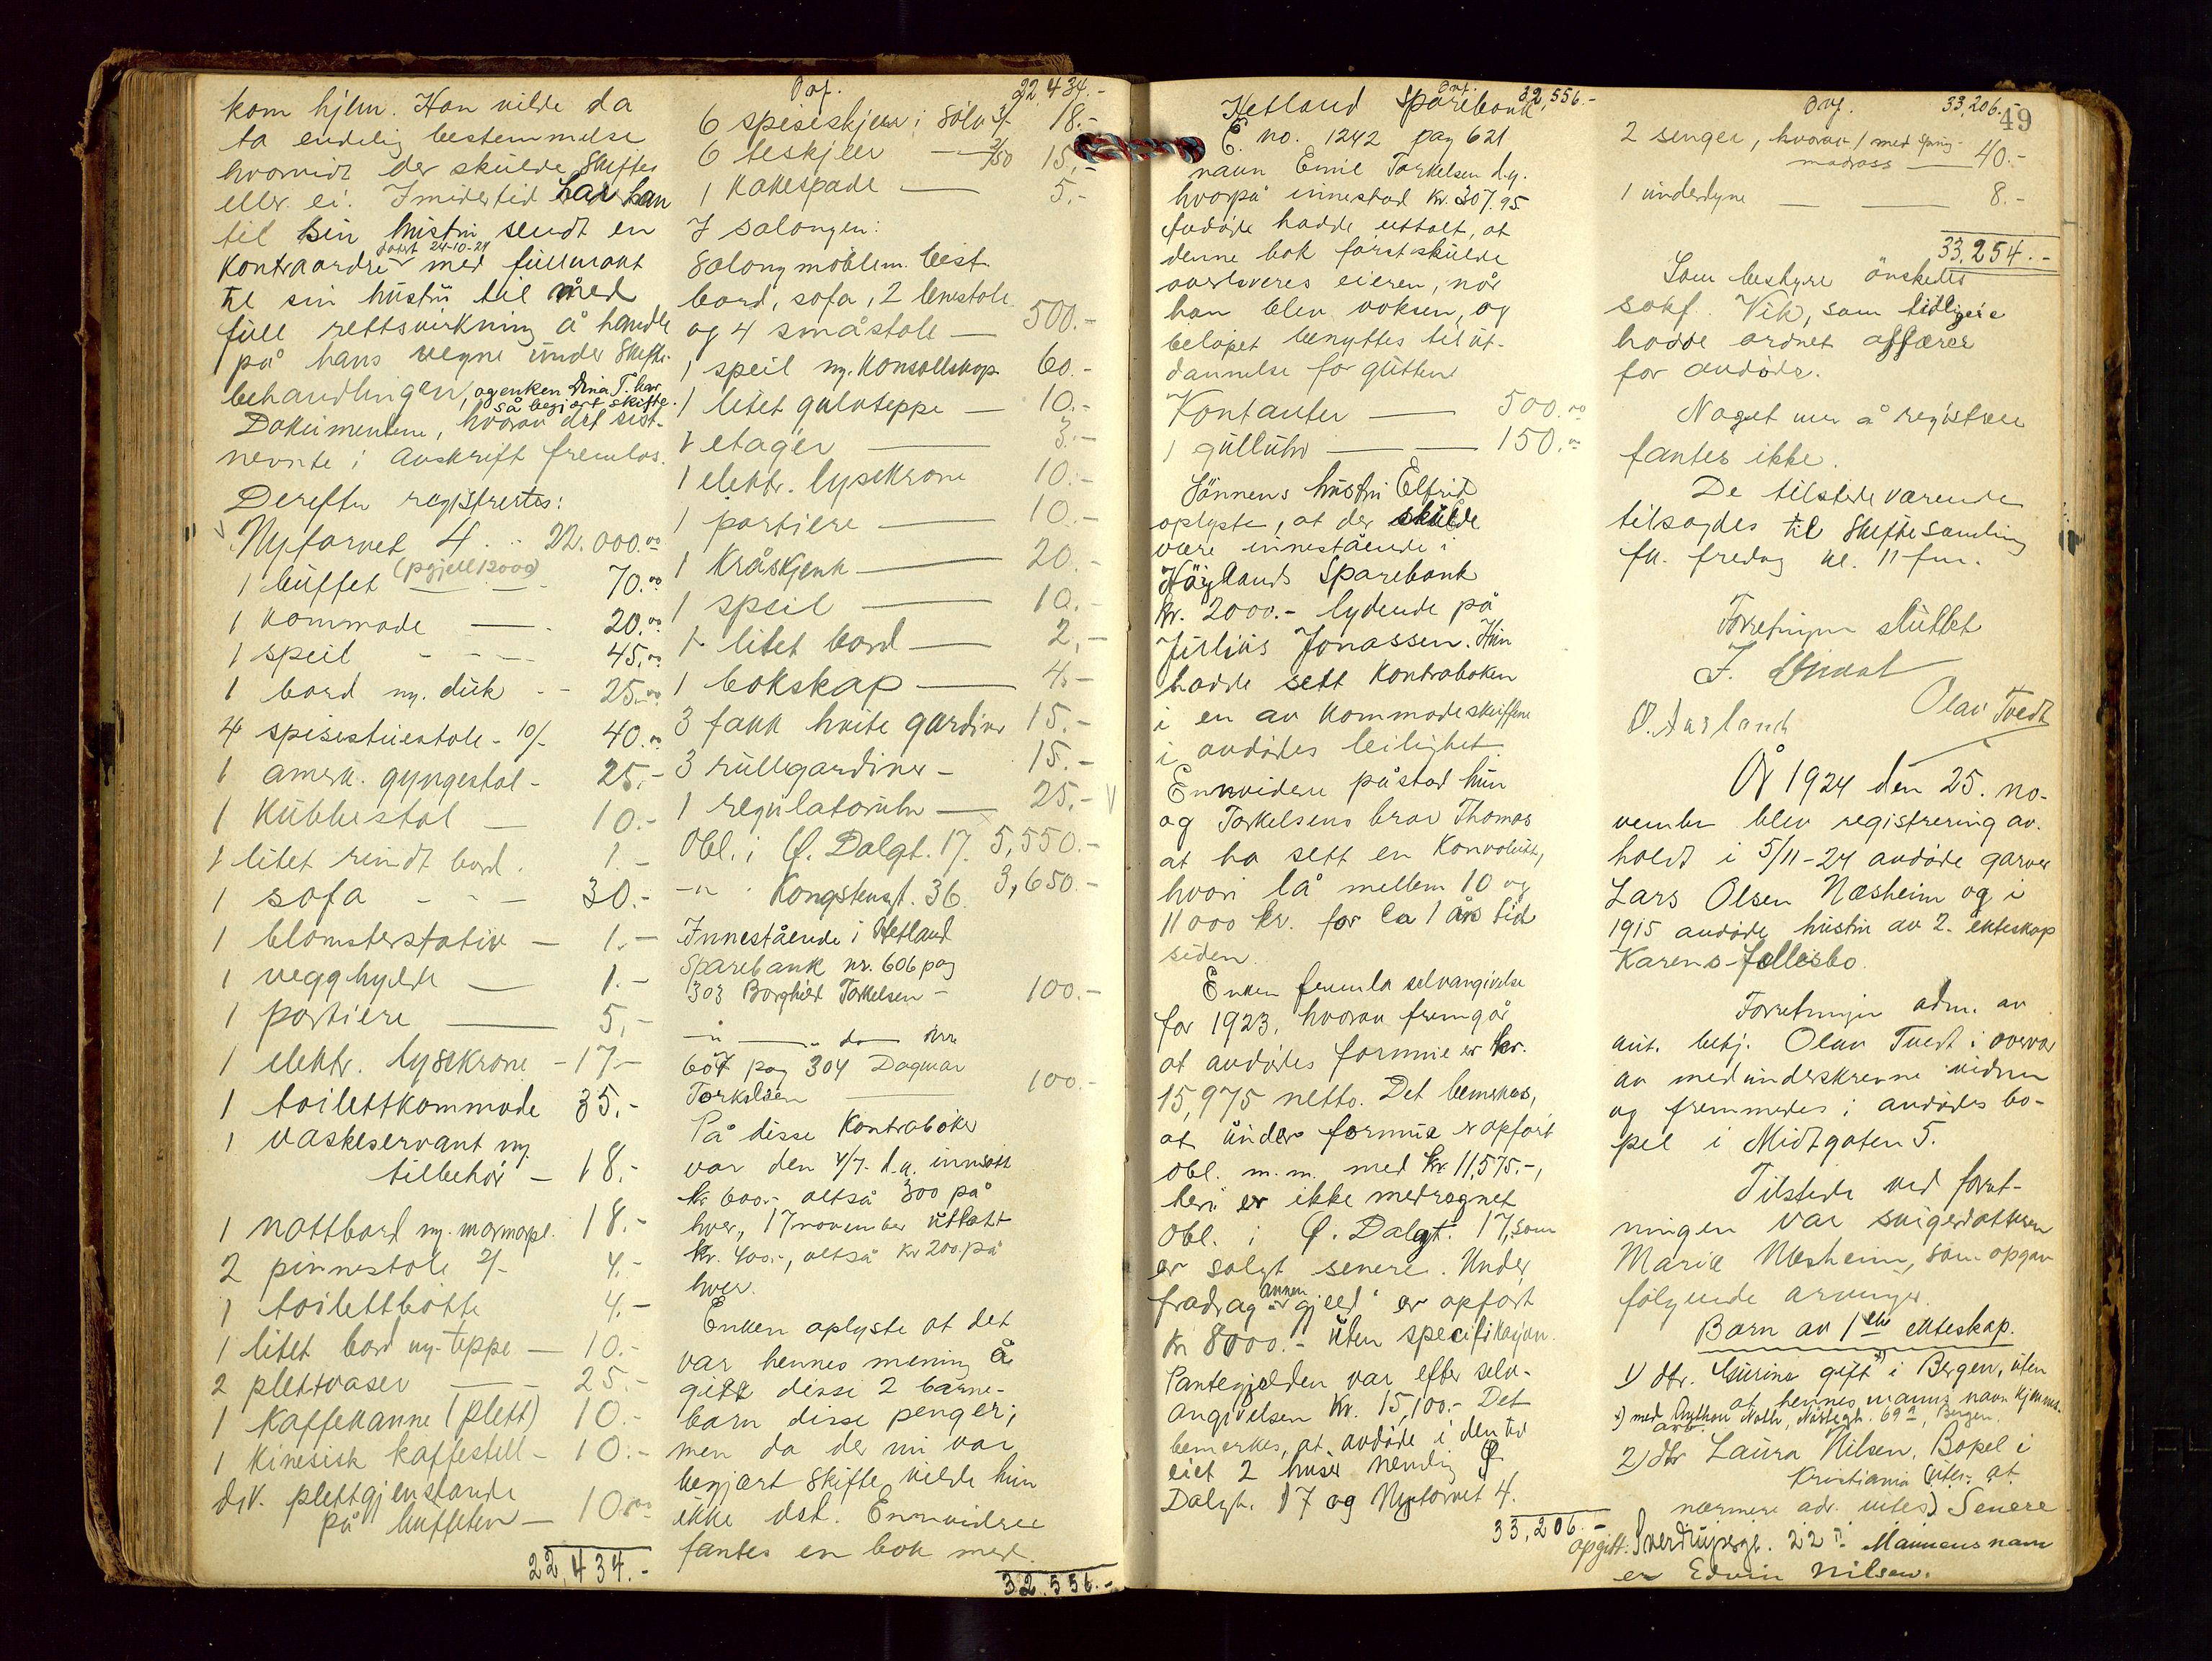 kom hjem. Han vilde da
ta endelig bestemmelse
hvorvidt der skulde skiftes
eller ei. Imidlertid har han
til sin hustru sendt en
datert 24-10-24
kontraordre med fullmakt
til sin hustru til med
full rettsvirkning å handle
på hans vegne under skifte-
behandlingen, og enken Dina T. har
så begjært skifte.
Dokumentene, hvorav det sist-
nevnte i avskrift fremlas.
Derefter registrertes:
Nytorvet 4 .. 22.000.00
(pgjell 12000)
1 buffet — — 70.00
1 kommode — 20.00
1 speil - - - 45.00
1 bord m. duk - - 25.00
4 spisestuestole - 10/- 40.00
1 amerk. gyngestol - 25.-
1 kubbestol — 10.-
1 litet rundt bord. 1.-
1 sofa - - - 30.-
1 blomsterstativ — 1.-
1 vegghylde — 1.-
1 portiere — 5.-
1 elektr. lysekrone - 17.-
1 toilettkommode 35.-
1 vaskeservant m.
tilbehør — 18.-
1 nattbord m. marmorpl. 18.-
2 pinnestole 2/- 4.-
1 toilettbøtte 4.-
1 litet bord m. teppe — 10.-
2 plettvaser — 25.-
1 kaffekanne (plett) 10.-
1 kinesisk kaffestell - 10.-
div. plettgjenstande
på buffeten — 10.00
22,434.-
Ovf. 22,434.-
6 spiseskjeer i sølv 3/- 18.-
6 teskjeer — 2/50 15.-
1 kakespade — 5.-
I salongen:
Salongmøblem. best.
bord, sofa, 2 lenestole
og 4 småstole — 500.-
1 speil m. konsollskap 60.-
1 litet gulvteppe — 10.-
1 etager — 3.-
1 elektr. lysekrone 10.-
1 portiere — 10.-
1 kråskjenk — 20.-
1 speil — 10.-
1 litet bord — 2.-
1 bokskap — 4.-
3 fakk hvite gardiner 15.-
3 rullegardiner — 15.-
1 regulatoruhr — 25.-
Obl. i Ø. Dalgt. 17. 5,550.-
-"- Kongstensgt. 36. 3,650.-
Innestående i Hetland
Sparebank nr. 606 pag
303 Borghild Torkelsen - 100.-
-"- — do — nr.
607 pag 304 Dagmar
Torkelsen — 100.-
På disse kontrabøker
var den 4/7. d.a. innsatt
kr 600.- altså 300 på
hver, 17 november uttatt
kr. 400.-, altså kr 200 på
hver.
Enken oplyste at det
var hennes mening å
gitt disse 2 barne-
barn disse penger,
men da der nu var
begjært skifte vilde hun
ikke det. Ennvidere
fantes en bok med
32.556.-
Ovf. 32,556.-
Hetland Sparebank
E. no. 1242 pag 621
navn Emil Torkelsen d.y.
hvorpå innestod kr. 307.95
Avdøde hadde uttalt, at
denne bok først skulde
overleveres eieren, når
han blev voksen, og
beløpet benyttes til ut-
dannelse for gutten
Kontanter — 500.00
1 gulluhr — 150.00
Sønnens hustru Elfrid
oplyste, at der skulde
være innestående i
Høylands Sparebank
kr. 2000.- lydende på
Julius Jonassen. Hun
hadde sett kontraboken
i en av kommodeskuffene
i avdødes leilighet.
Ennvidere påstod hun
og Torkelsens bror Thomas
at ha sett en konvolutt,
hvori lå mellem 10 og
11000 kr. for ca 1 års tid
siden.
Enken fremla selvangivelse
for 1923, hvorav fremgår
at avdødes formue er kr.
15,975 netto. Det bemerkes,
at under formue er opført
obl. m.m. med kr. 11,575.-,
heri er ikke medregnet
obl. i Ø. Dalgt. 17, som
er solgt senere. Under
fradrag "annen gjeld" er opført
kr 8000.- uten specifikasjon.
Pantegjelden var efter selv-
angivelsen kr. 15,100.- Det
bemerkes, at avdøde i den tid
eiet 2 huser nemlig Ø
Dalgt. 17 og Nytorvet 4.
33,206.-
Ovf. 33,206.-
49
2 senger, hvorav 1 med spring-
madrass — 40.-
1 underdyne — — 8.-
33,254.-
Som bestyrer ønskedes
sakf. Vik, som tidligere
hadde ordnet affærer
for avdøde.
Noget mer å registrere
fantes ikke.
De tilstedeværende
tilsagdes til skiftesamling
fk. fredag kl. 11 fm.
Forretningen sluttet
Olav Tvedt
O. Aarland
År 1924 den 25. no-
vember blev registrering av-
holdt i 5/11-24 avdøde garver
Lars Olsen Næsheim og i
1915 avdøde hustru av 2. ekteskap
Karens fellesbo.
Forretningen adm. av
aut. betj. Olav Tvedt i overvær
av medunderskrevne vidner
og fremmedes i avdødes bo-
pel i Midtgaten 5.
Tilstede ved forret-
ningen var svigerdatteren
Marie Næsheim, som opgav
følgende arvinger.
Barn av 1ste ekteskap.
1) dtr. Laurine gift x) i Bergen, uten
at hennes manns navn kjennes.
x) med Nøstegt. 69 A, Bergen.
2) dtr Laura Nilsen, Bopel i
Kristiania (uten at
nærmere adr. vites). Senere
opgitt: Sverdrupsgt. 22 II. Mannens navn
er Edvin Nilsen.